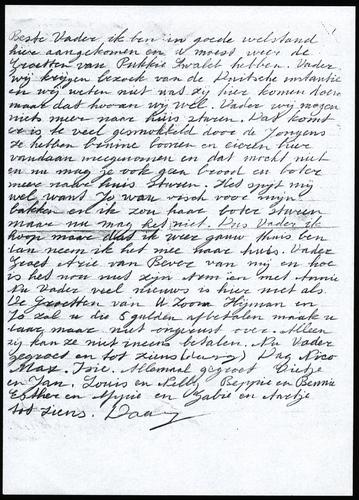 Beste Vader ik ben in goede welstand
hier aangekomen en u moest weer de
Groetten van Pukkie Zwalet hebben. Vader
wij krijgen bezoek van de Duitsche instantie
en wij weten niet was zij hier komen doen
maar dat hooren wij wel. Vader wij mogen
niets meer naar huis sturen. Dat komt
er is te veel gesmokkeld door de Jongens
ze hebben bruine boonen en eieren hier
vandaan meegenomen en dat mocht niet
en nu mag je ook geen brood en boter
meer naar huis sturen. Het spijt mij
wel want Je wan visch voor mijn
bakken en ik zou haar boter sturen
maar nu mag het niet. Dus Vader ik
hoop maar dat ik weer gauw thuis ben
dan neem ik het mee naar huis. Vader
Groet van Bever van mij en hoe
is het nou met zijn en met Annie
Nu Vader veel nieuws is hier niet als
De Groetten van U Zoon Hijman en
Jo zal u die 5 gulden afbetalen maak u
daar maar niet ongerust over. Alleen
zij kan ze niet ineens betalen. Nu Vader
gegroet en tot ziens Dag Nico
Max. Ine. Allemaal gegroet Dietje
en Jan. Louis en Nelly Beppie en Bennie
Esther en Appie en Zabie en Aaltje
tot ziens. Daag